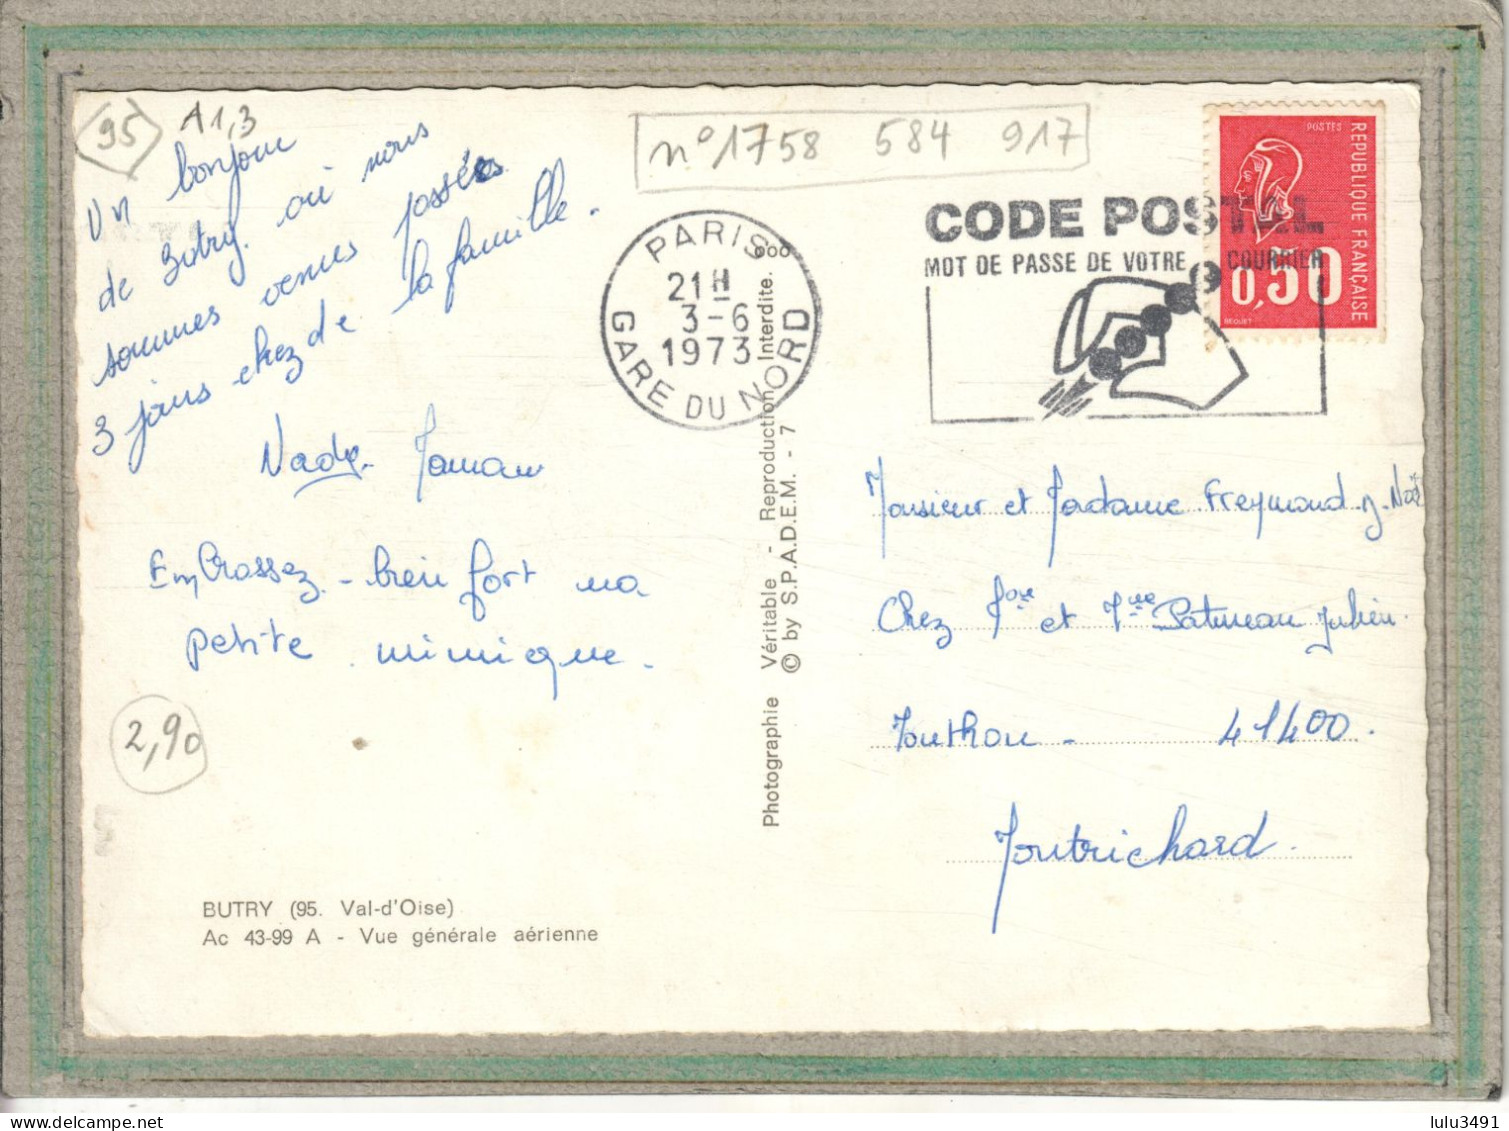 95
A1,3
n°1758 584 917
Un bonjour
de Butry. où nous
sommes venus passés
3 jours chez de la famille.
Nady. Maman
Embrassez - bien fort ma
petite mimique.
2,90
BUTRY (95. Val-d'Oise)
Ac 43-99 A - Vue générale aérienne
Photographie Véritable - Reproduction Interdite.
© by S.P.A.D.E.M. - 7
PARIS
21H
3-6
1973
GARE DU NORD
CODE POSTAL
MOT DE PASSE DE VOTRE COURRIER
POSTES
REPUBLIQUE FRANÇAISE
0,50
BEQUET
Monsieur et Madame Freymond J. Noë
Chez Mr et Mme Patureau Julien.
Monthou - 41400.
Montrichard.
delcampe.net
lulu3491